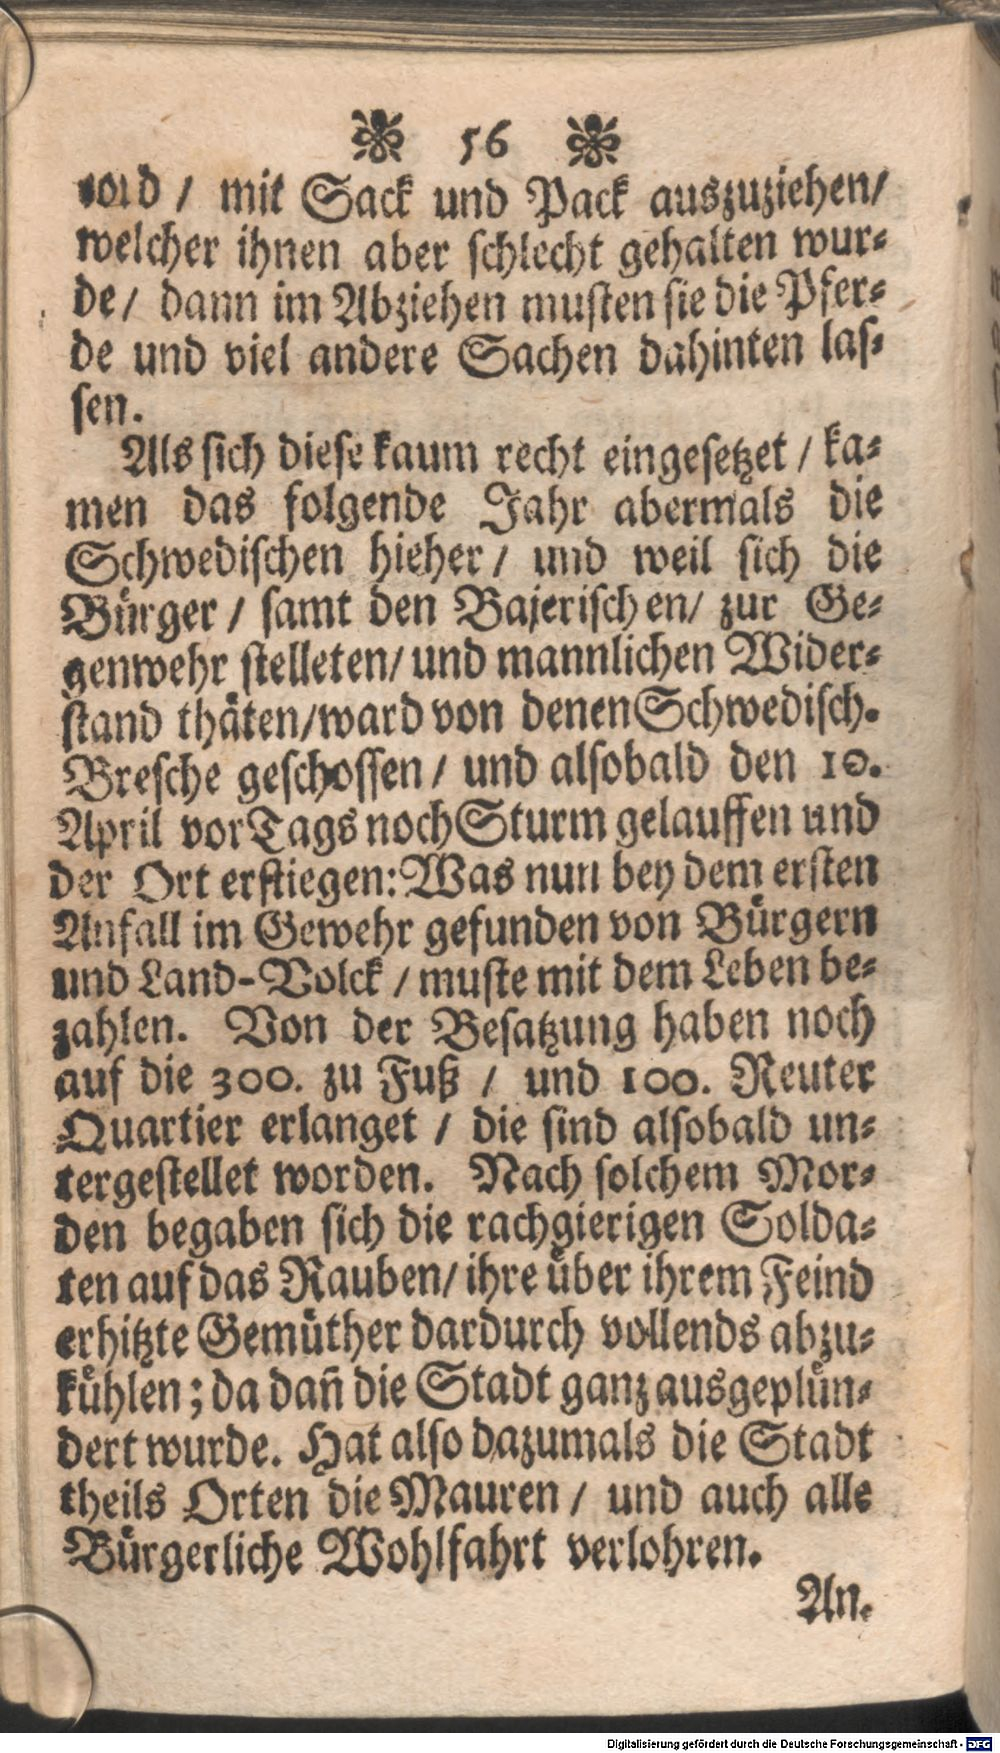 56
cord / mit Sack und Pack auszuziehen/
welcher ihnen aber schlecht gehalten wur-
de/ dann im Abziehen musten sie die Pfer-
de und viel andere Sachen dahinten las-
sen.
Als sich diese kaum recht eingesetzet / ka-
men das folgende Jahr abermals die
Schwedischen hieher / und weil sich die
Bürger / samt den Bajerischen/ zur Ge-
genwehr stelleten/ und mannlichen Wider-
stand thäten/ward von denen Schwedisch.
Bresche geschossen / und alsobald den 10.
April vor Tags noch Sturm gelauffen und
der Ort erstiegen: Was nun bey dem ersten
Anfall im Gewehr gefunden von Bürgern
und Land-Volck / muste mit dem Leben be-
zahlen. Von der Besatzung haben noch
auf die 300. zu Fuß / und 100. Reuter
Quartier erlanget / die sind alsobald un-
tergestellet worden. Nach solchem Mor-
den begaben sich die rachgierigen Solda-
ten auf das Rauben/ ihre über ihrem Feind
erhitzte Gemüther dardurch vollends abzu-
kühlen; da dañ die Stadt ganz ausgeplün-
dert wurde. Hat also dazumals die Stadt
theils Orten die Mauren / und auch alle
Bürgerliche Wohlfahrt verlohren.
An.
Digitalisierung gefördert durch die Deutsche Forschungsgemeinschaft - DFG